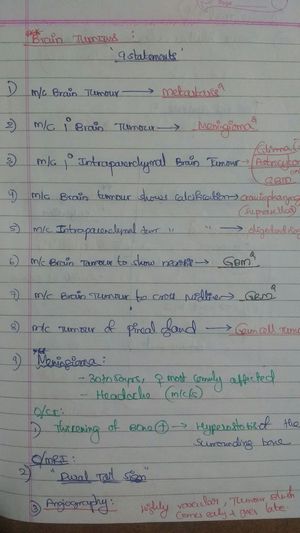 Brain Tumours :
'9 statements'
1) m/c Brain Tumour → Metastasis
2) m/c 1° Brain Tumour → Meningioma
3) m/c 1° Intraparenchymal Brain Tumour →
4) m/c Brain tumour shows calcification →
5) m/c Intraparenchymal
6) m/c Brain Tumour to show → GBM
7) m/c Brain Tumour to cross midline → GBM
8) m/c Tumour of Pineal gland → Germ cell
9) Meningioma :
- 30 to 50yrs, ♀ most affected
- Headache (m/c/s)
O/CT :
1) Thickening of Bone ⊕ → Hyperostosis of the
surrounding bone
O/MRI :
2) "Dural Tail Sign"
3) Angiography : Highly vascular, Tumour
comes early & goes late